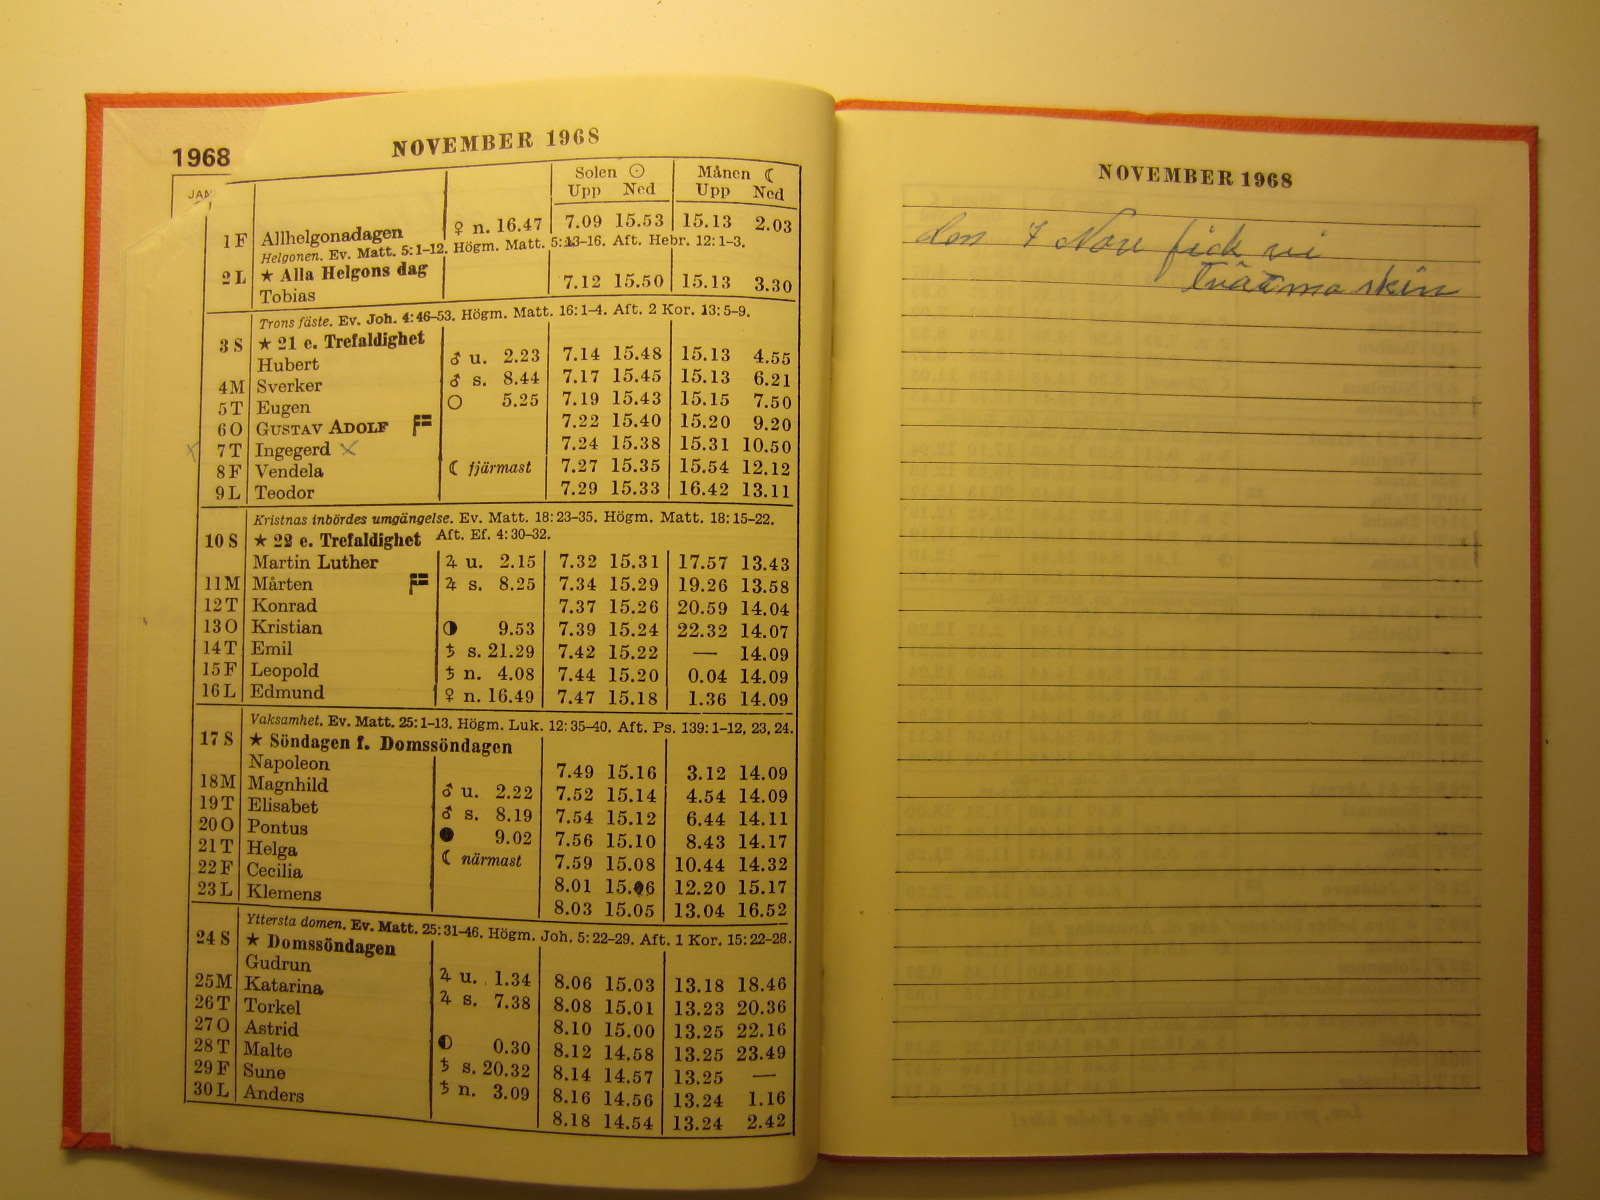 1968
JAN
NOVEMBER 1968
Solen ☉ Månen ☾
Upp Ned Upp Ned
1 F Allhelgonadagen ♀ n. 16.47 7.09 15.53 15.13 2.03
Helgonen. Ev. Matt. 5:1–12. Högm. Matt. 5:13–16. Aft. Hebr. 12:1–3.
2 L ★ Alla Helgons dag
Tobias 7.12 15.50 15.13 3.30
Trons fäste. Ev. Joh. 4:46–53. Högm. Matt. 16:1–4. Aft. 2 Kor. 13:5–9.
3 S ★ 21 e. Trefaldighet
Hubert ♂ u. 2.23 7.14 15.48 15.13 4.55
4 M Sverker ♂ s. 8.44 7.17 15.45 15.13 6.21
5 T Eugen ○ 5.25 7.19 15.43 15.15 7.50
6 O GUSTAV ADOLF 7.22 15.40 15.20 9.20
x 7 T Ingegerd x 7.24 15.38 15.31 10.50
8 F Vendela ☾ fjärmast 7.27 15.35 15.54 12.12
9 L Teodor 7.29 15.33 16.42 13.11
Kristnas inbördes umgängelse. Ev. Matt. 18:23–35. Högm. Matt. 18:15–22.
10 S ★ 22 e. Trefaldighet Aft. Ef. 4:30–32.
Martin Luther ♃ u. 2.15 7.32 15.31 17.57 13.43
11 M Mårten ♃ s. 8.25 7.34 15.29 19.26 13.58
12 T Konrad 7.37 15.26 20.59 14.04
13 O Kristian ◑ 9.53 7.39 15.24 22.32 14.07
14 T Emil ♄ s. 21.29 7.42 15.22 — 14.09
15 F Leopold ♄ n. 4.08 7.44 15.20 0.04 14.09
16 L Edmund ♀ n. 16.49 7.47 15.18 1.36 14.09
Vaksamhet. Ev. Matt. 25:1–13. Högm. Luk. 12:35–40. Aft. Ps. 139:1–12, 23, 24.
17 S ★ Söndagen f. Domssöndagen
Napoleon 7.49 15.16 3.12 14.09
18 M Magnhild ♂ u. 2.22 7.52 15.14 4.54 14.09
19 T Elisabet ♂ s. 8.19 7.54 15.12 6.44 14.11
20 O Pontus ● 9.02 7.56 15.10 8.43 14.17
21 T Helga ☾ närmast 7.59 15.08 10.44 14.32
22 F Cecilia 8.01 15.06 12.20 15.17
23 L Klemens 8.03 15.05 13.04 16.52
Yttersta domen. Ev. Matt. 25:31–46. Högm. Joh. 5:22–29. Aft. 1 Kor. 15:22–28.
24 S ★ Domssöndagen
Gudrun ♃ u. 1.34 8.06 15.03 13.18 18.46
25 M Katarina ♃ s. 7.38 8.08 15.01 13.23 20.36
26 T Torkel 8.10 15.00 13.25 22.16
27 O Astrid ◐ 0.30 8.12 14.58 13.25 23.49
28 T Malte ♄ s. 20.32 8.14 14.57 13.25 —
29 F Sune ♄ n. 3.09 8.16 14.56 13.24 1.16
30 L Anders 8.18 14.54 13.24 2.42
NOVEMBER 1968
den 7 Nov fick vi
tvättmaskin